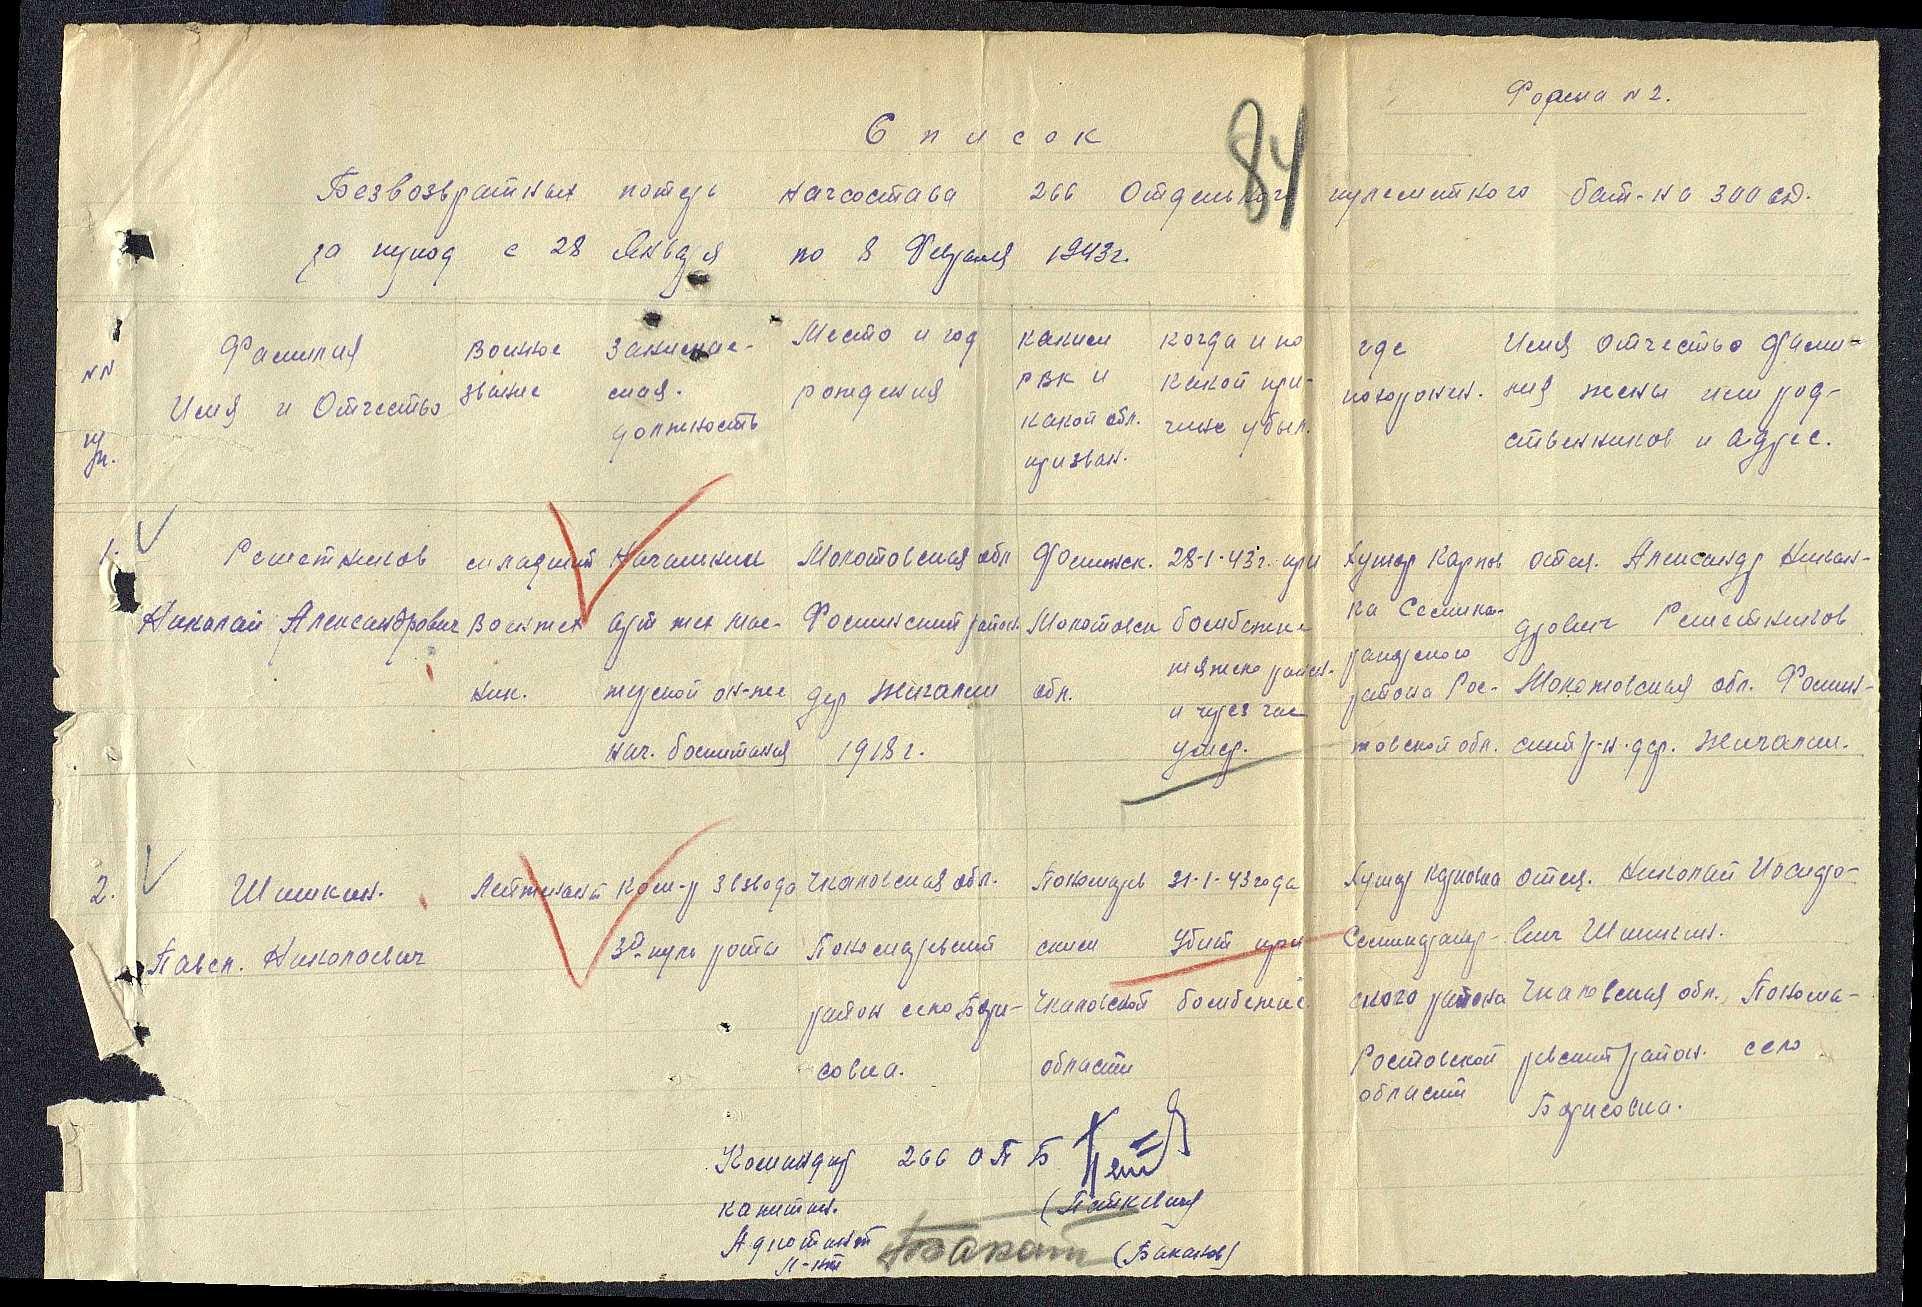 Форма N 2.
84
Список
Безвозвратных потерь начсостава 266 Отдельного пулеметного бат-на 300 сд.
за период с 28 Января по 8 Февраля 1943г.
NN
пп.
Фамилия
Имя и Отчество
Военное
звание
Занимае-
мая
должность
Место и год
рождения
каким
РВК и
какой обл.
призван.
когда и по
какой при-
чине убыл.
где
похоронен.
Имя Отчество Фами-
лия жены или род-
ственников и адрес.
1.
Решетников
Николай Александрович
младший
Воентех
ник.
Начальник
арт тех мас-
терской он-же
нач. боепитания
Молотовская обл
Фокинский район
дер Жигалки
1918г.
Фокинск.
Молотовск
обл.
28-1-43г. при
бомбежке
тяжело ранен.
и через час
умер.
Хутор Карпов
ка Семика-
ракорского
района Рос-
товской обл.
отец. Александр Никан-
дрович Решетников
Молотовская обл. Фокин-
ский р-н. дер. Жигалки.
2.
Шишкин.
Павел. Николаевич
Лейтенант
Ком-р взвода
3й пуль роты
Чкаловская обл.
Пономаревский
район село Бори-
совка.
Пономарев
ским
Чкаловской
области
31-1-43 года
Убит при
бомбежке
Хутор Карповка
Семикаракор-
ского района
Ростовской
области
отец. Николай Исидо-
вич Шишкин.
Чкаловская обл. Понома-
ревский район. село
Борисовка.
Командир 266 ОПБ
капитан.
Адъютант
л-нт
(Баканов)